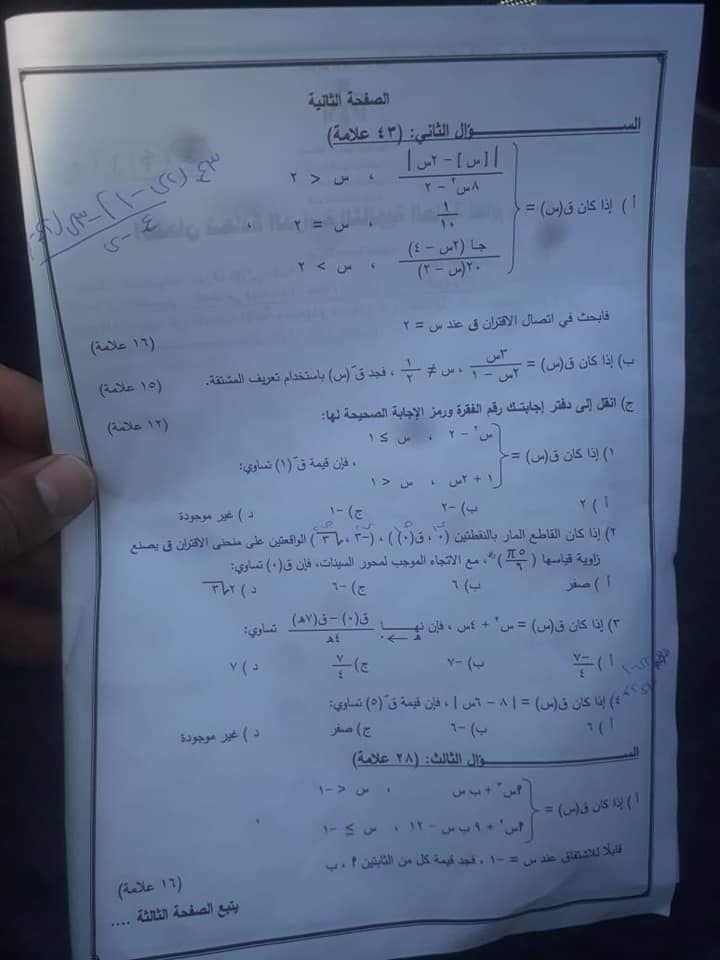 الصفحة الثانية
الســـــــؤال الثاني: (٤٣ علامة)
أ ) إذا كان ق(س) =
| [س] – ٢س | / ٨س٢ – ٢ ، س < ٢
١/١٠ ، س = ٢ ،
جا (٢س – ٤) / ٢٠(س – ٢) ، س > ٢
فابحث في اتصال الاقتران ق عند س = ٢ (١٦ علامة)
ب) إذا كان ق(س) = ٣س / ٢س – ١ ، س ≠ ١/٢ ، فجد قَ(س) باستخدام تعريف المشتقة. (١٥ علامة)
ج) انقل إلى دفتر إجابتك رقم الفقرة ورمز الإجابة الصحيحة لها: (١٢ علامة)
١) إذا كان ق(س) =
س٢ – ٢ ، س ≥ ١
١ + ٢س ، س < ١
، فإن قيمة قَ(١) تساوي:
أ ) ٢ ب) –٢ ج) –١ د ) غير موجودة
٢) إذا كان القاطع المار بالنقطتين (٠ ، ق(٠)) ، (–٣ ، √٣) الواقعتين على منحنى الاقتران ق يصنع
زاوية قياسها (٥π/٦) ، مع الاتجاه الموجب لمحور السينات، فإن ق(٠) تساوي:
أ ) صفر ب) ٦ ج) –٦ د ) ٢√٣
٣) إذا كان ق(س) = س٢ + ٤س ، فإن نهــا هـ←٠ ق(٠) – ق(٧هـ) / ٤هـ تساوي:
أ ) –٧/٤ ب) –٧ ج) ٧/٤ د ) ٧
٤) إذا كان ق(س) = | ٨ – ٦س | ، فإن قيمة قَ(٥) تساوي:
أ ) ٦ ب) –٦ ج) صفر د ) غير موجودة
الســـــــؤال الثالث: (٢٨ علامة)
أ ) إذا كان ق(س) =
٢س٣ + ب س ، س < –١
٢س٢ + ٩ ب س – ١٢ ، س ≥ –١ ،
قابلًا للاشتقاق عند س = –١ ، فجد قيمة كل من الثابتين ٢ ، ب
(١٦ علامة)
يتبع الصفحة الثالثة ....